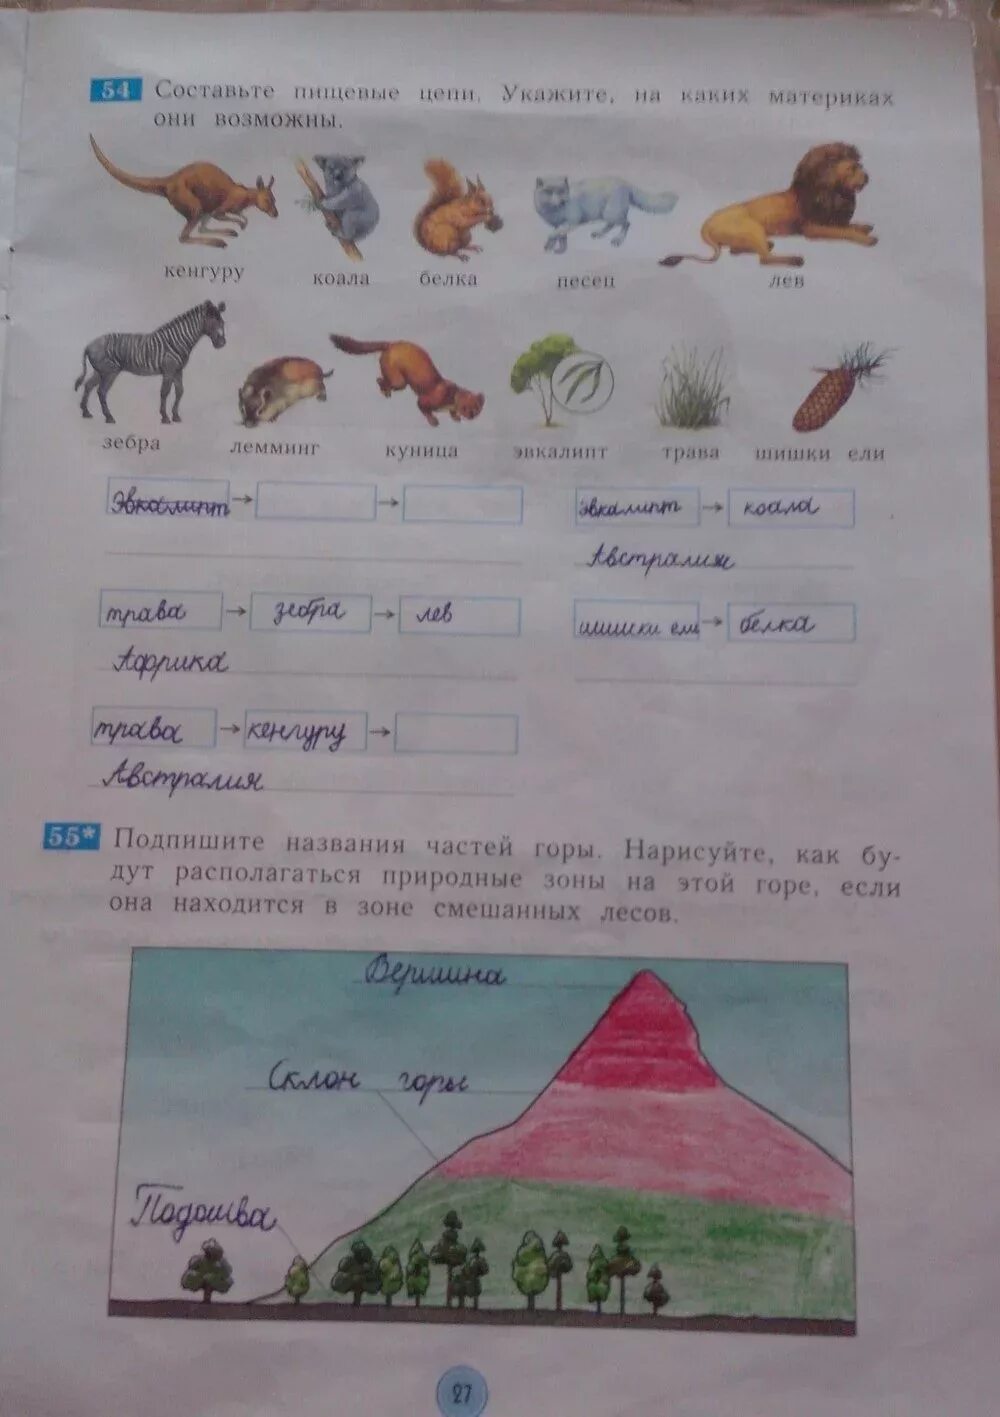 54 Составьте пищевые цепи. Укажите, на каких материках
они возможны.
кенгуру
коала
белка
песец
лев
зебра
лемминг
куница
эвкалипт
трава
шишки ели
Эвкалипт → →
эвкалипт → коала
Австралия
трава → зебра → лев
шишки ели → белка
Африка
трава → кенгуру →
Австралия
55* Подпишите названия частей горы. Нарисуйте, как бу-
дут располагаться природные зоны на этой горе, если
она находится в зоне смешанных лесов.
Вершина
Склон горы
Подошва
27